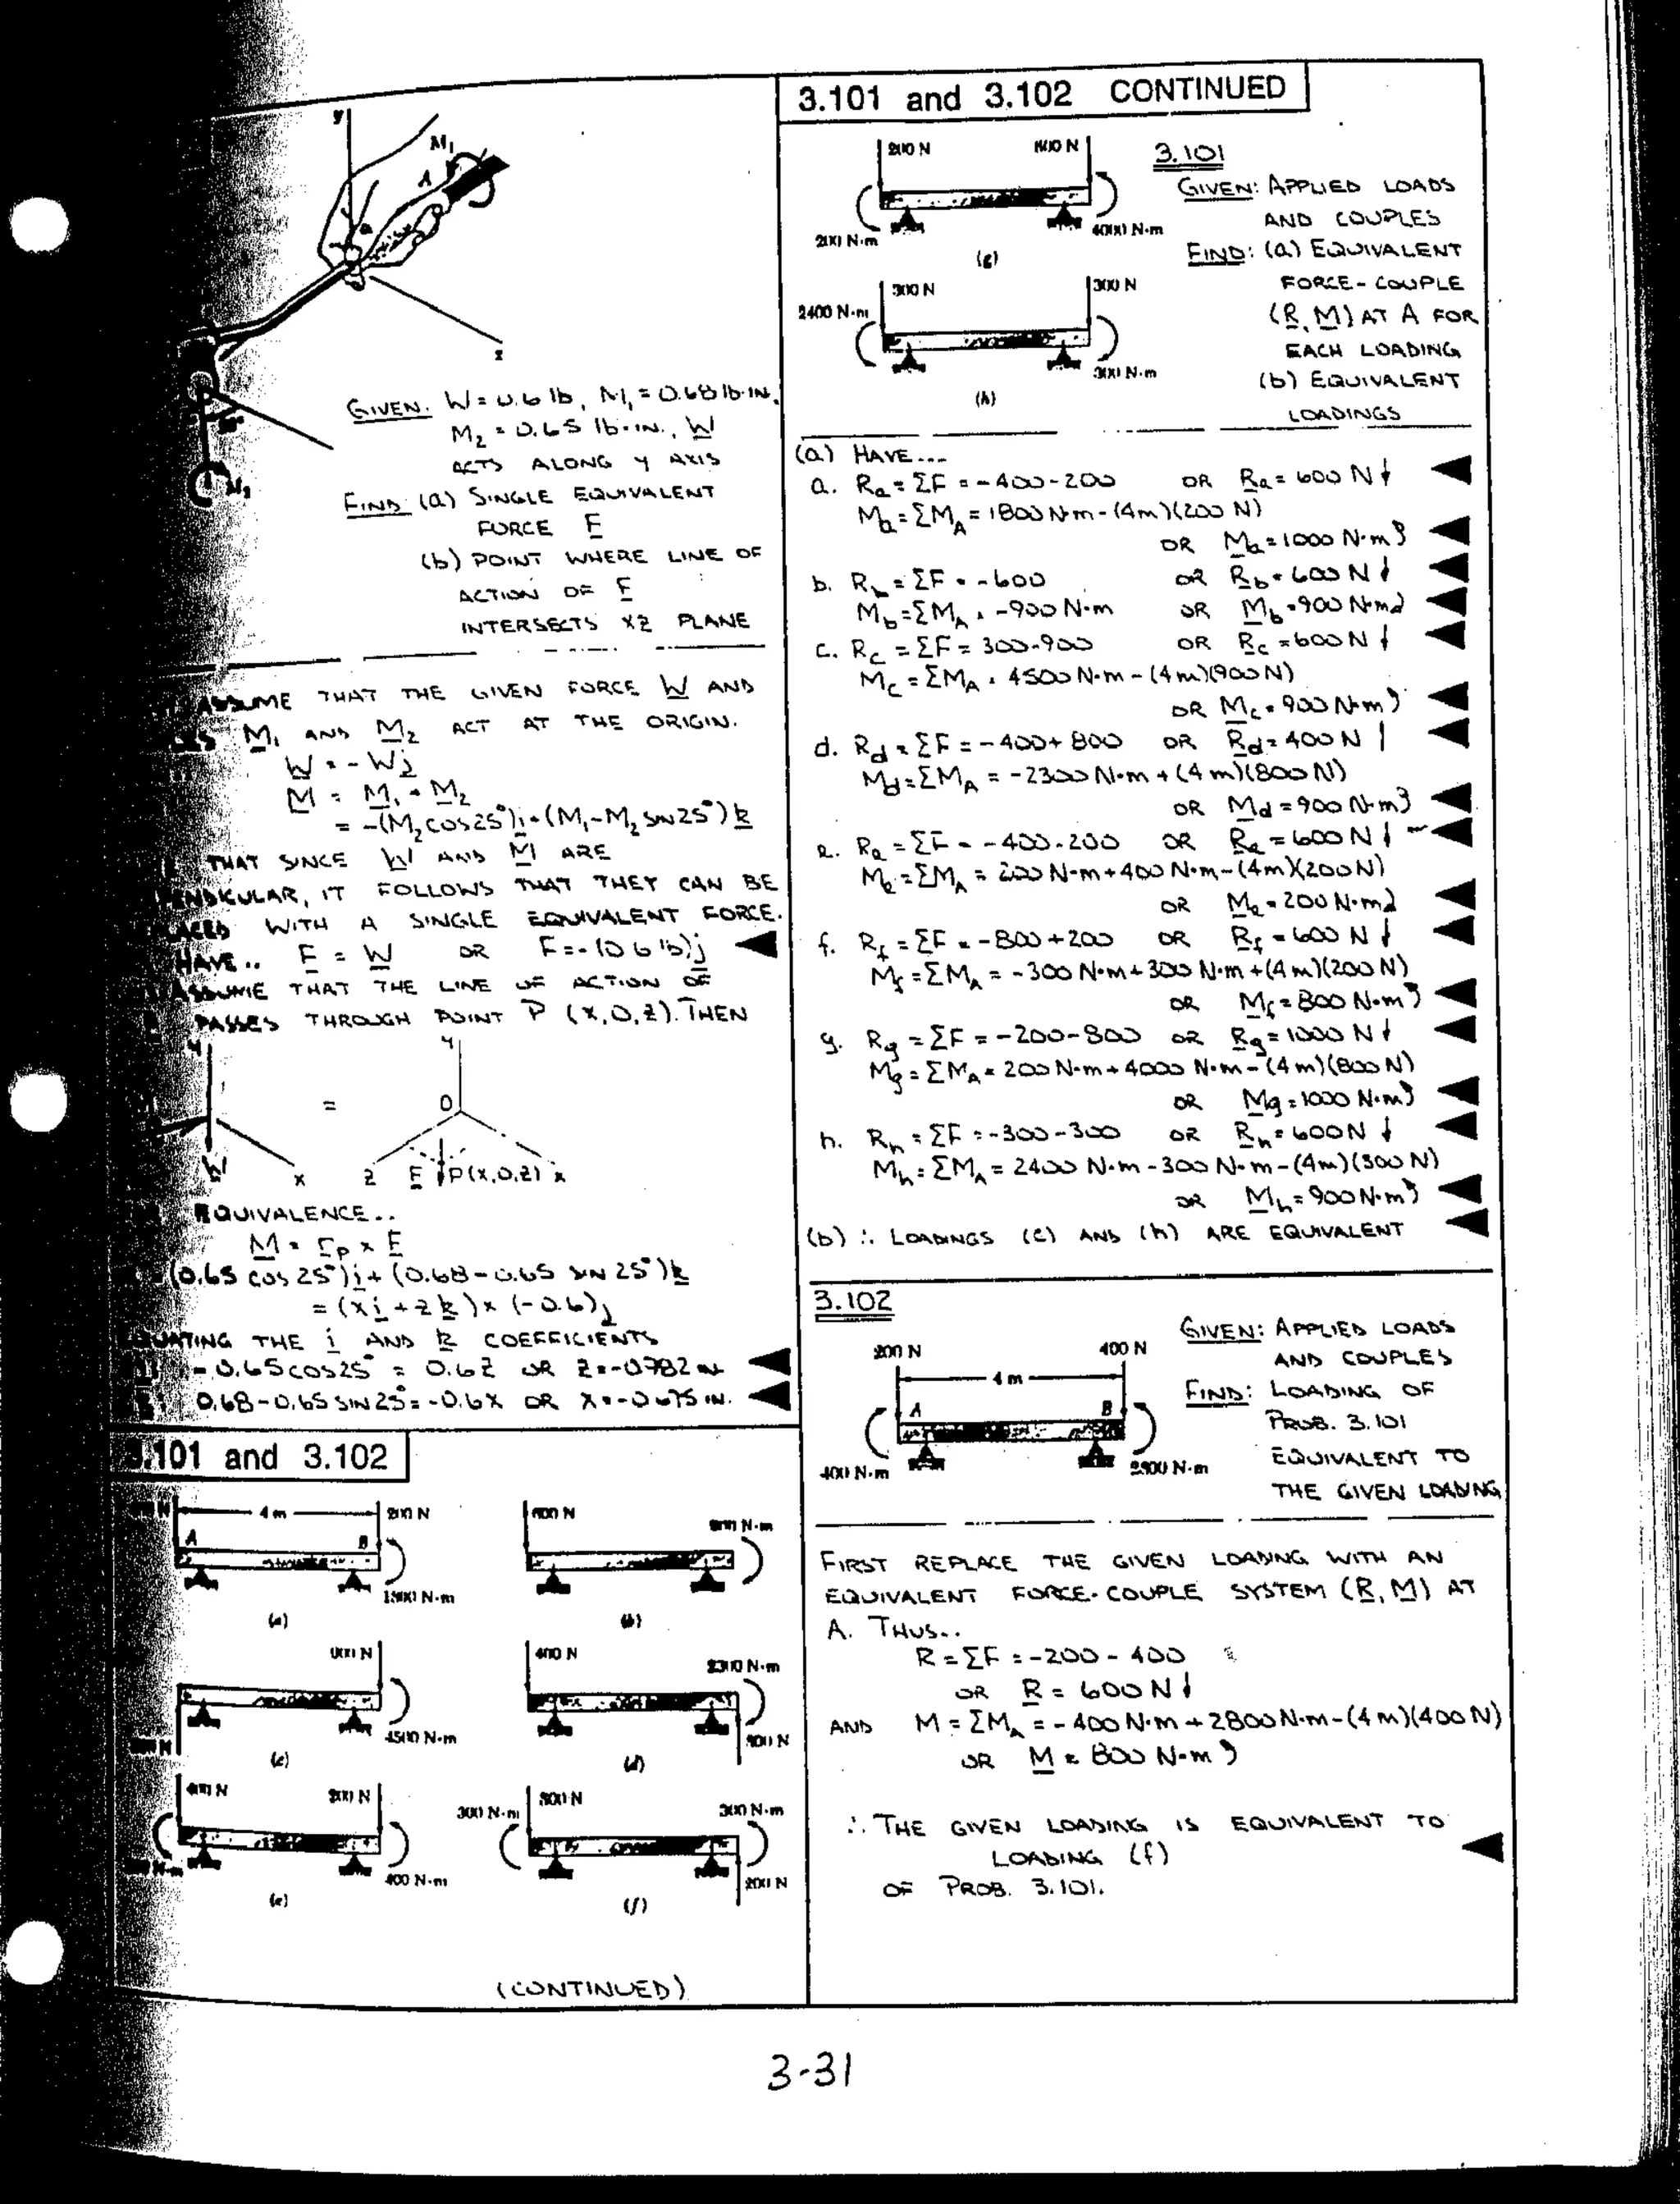 y
M₁
A
x
M₂
GIVEN: W = 0.6 lb, M₁ = 0.68 lb·IN.
M₂ = 0.65 lb·IN., W
ACTS ALONG Y AXIS
FIND: (a) SINGLE EQUIVALENT
FORCE F
(b) POINT WHERE LINE OF
ACTION OF F
INTERSECTS XZ PLANE
ASSUME THAT THE GIVEN FORCE W AND
M₁ AND M₂ ACT AT THE ORIGIN.
W = -Wj
M = M₁ + M₂
= -(M₂cos25°)i + (M₁-M₂ SIN25°)k
THAT SINCE W AND M ARE
IT FOLLOWS THAT THEY CAN BE
WITH A SINGLE EQUIVALENT FORCE.
HAVE.. F = W OR F = -(0.6 lb)j
ASSUME THAT THE LINE OF ACTION OF
PASSES THROUGH POINT P (x,0,z). THEN
y
W
x
=
y
O
z
F
P(x,0,z)
x
EQUIVALENCE..
M = r_P × F
(0.65 cos 25°)i + (0.68-0.65 SIN 25°)k
= (xi + zk) × (-0.6)j
THE i AND k COEFFICIENTS
-0.65cos25° = 0.6z OR z = -0.782 IN.
0.68-0.65 SIN25° = -0.6x OR x = -0.675 IN.
3.101 and 3.102
4 m
200 N
A
B
1800 N·m
(a)
600 N
900 N·m
(b)
900 N
4500 N·m
(c)
400 N
2300 N·m
800 N
(d)
400 N
200 N
400 N·m
(e)
300 N·m
800 N
300 N·m
200 N
(f)
(CONTINUED)
3.101 and 3.102 CONTINUED
200 N
800 N
200 N·m
4000 N·m
(g)
300 N
300 N
2400 N·m
300 N·m
(h)
3.101
GIVEN: APPLIED LOADS
AND COUPLES
FIND: (a) EQUIVALENT
FORCE-COUPLE
(R, M) AT A FOR
EACH LOADING
(b) EQUIVALENT
LOADINGS
(a) HAVE...
a. Ra = ΣF = -400-200 OR Ra = 600 N↓
Ma = ΣM_A = 1800 N·m - (4m)(200 N)
OR Ma = 1000 N·m ↺
b. Rb = ΣF = -600 OR Rb = 600 N↓
Mb = ΣM_A = -900 N·m OR Mb = 900 N·m ↻
c. Rc = ΣF = 300-900 OR Rc = 600 N↓
Mc = ΣM_A = 4500 N·m - (4m)(900 N)
OR Mc = 900 N·m ↺
d. Rd = ΣF = -400+800 OR Rd = 400 N↑
Md = ΣM_A = -2300 N·m + (4 m)(800 N)
OR Md = 900 N·m ↺
e. Re = ΣF = -400-200 OR Re = 600 N↓
Me = ΣM_A = 200 N·m + 400 N·m - (4m)(200 N)
OR Me = 200 N·m ↻
f. Rf = ΣF = -800+200 OR Rf = 600 N↓
Mf = ΣM_A = -300 N·m + 300 N·m + (4 m)(200 N)
OR Mf = 800 N·m ↺
g. Rg = ΣF = -200-800 OR Rg = 1000 N↓
Mg = ΣM_A = 200 N·m + 4000 N·m - (4 m)(800 N)
OR Mg = 1000 N·m ↺
h. Rh = ΣF = -300-300 OR Rh = 600 N↓
Mh = ΣM_A = 2400 N·m - 300 N·m - (4m)(300 N)
OR Mh = 900 N·m ↺
(b) ∴ LOADINGS (c) AND (h) ARE EQUIVALENT
3.102
200 N
400 N
4 m
A
B
400 N·m
2800 N·m
GIVEN: APPLIED LOADS
AND COUPLES
FIND: LOADING OF
PROB. 3.101
EQUIVALENT TO
THE GIVEN LOADING
FIRST REPLACE THE GIVEN LOADING WITH AN
EQUIVALENT FORCE-COUPLE SYSTEM (R, M) AT
A. THUS..
R = ΣF = -200 - 400
OR R = 600 N↓
AND M = ΣM_A = -400 N·m + 2800 N·m - (4 m)(400 N)
OR M = 800 N·m ↺
∴ THE GIVEN LOADING IS EQUIVALENT TO
LOADING (f)
OF PROB. 3.101.
3-31